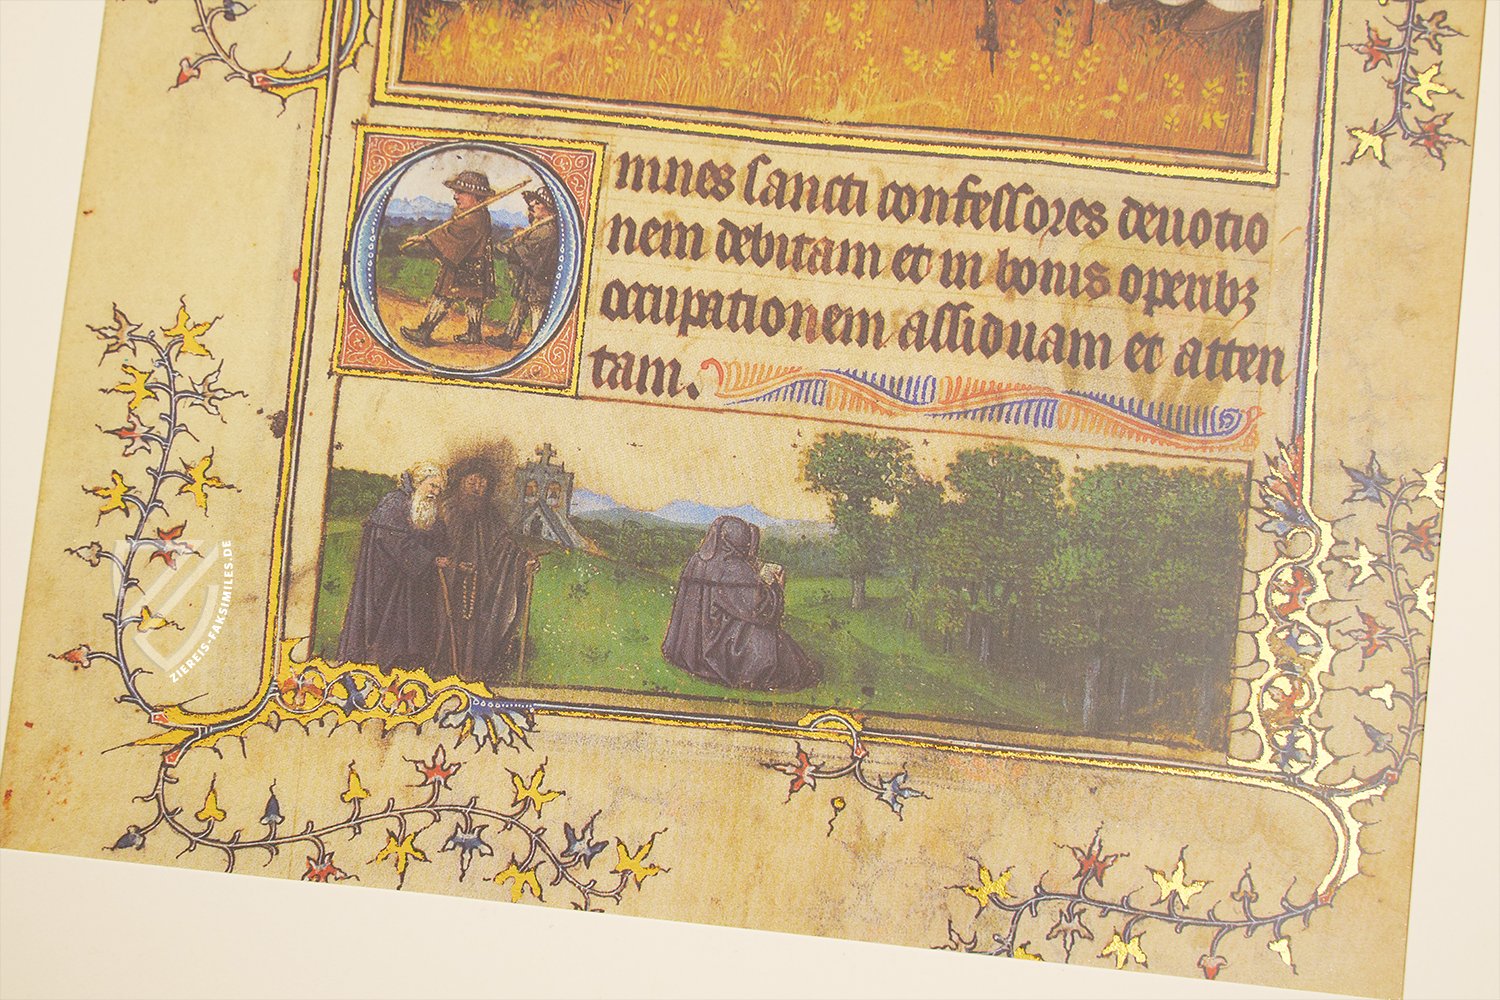 Omnes sancti confessores deuotio
nem debitam et in bonis operibꝫ
occupationem assiduam et atten
tam.
ZIEREIS-FAKSIMILES.DE